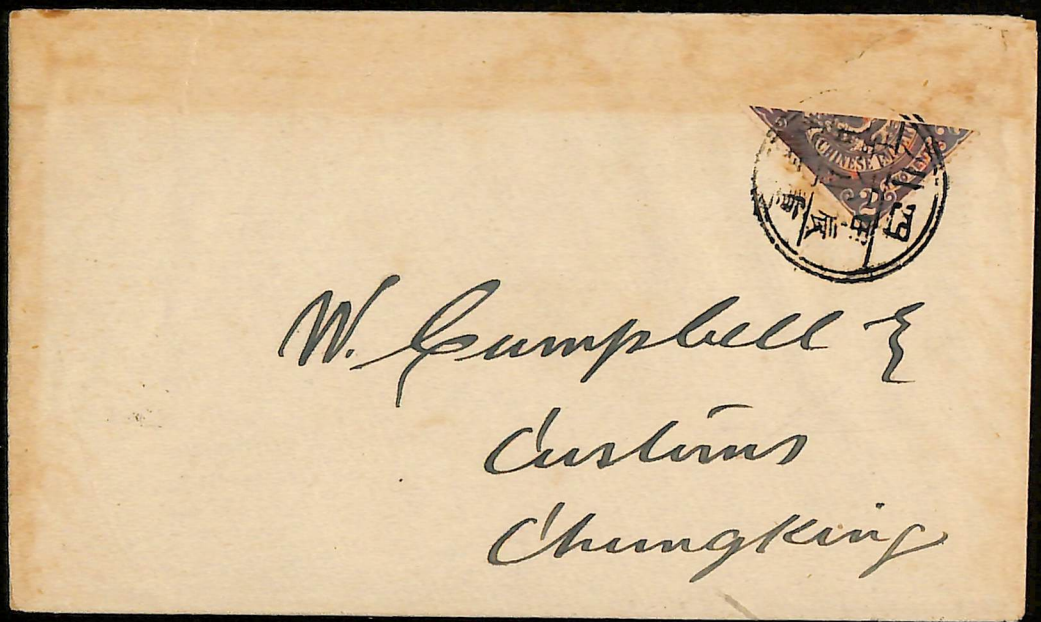 CHINESE EM
2
W. Campbell E
Customs
Chungking